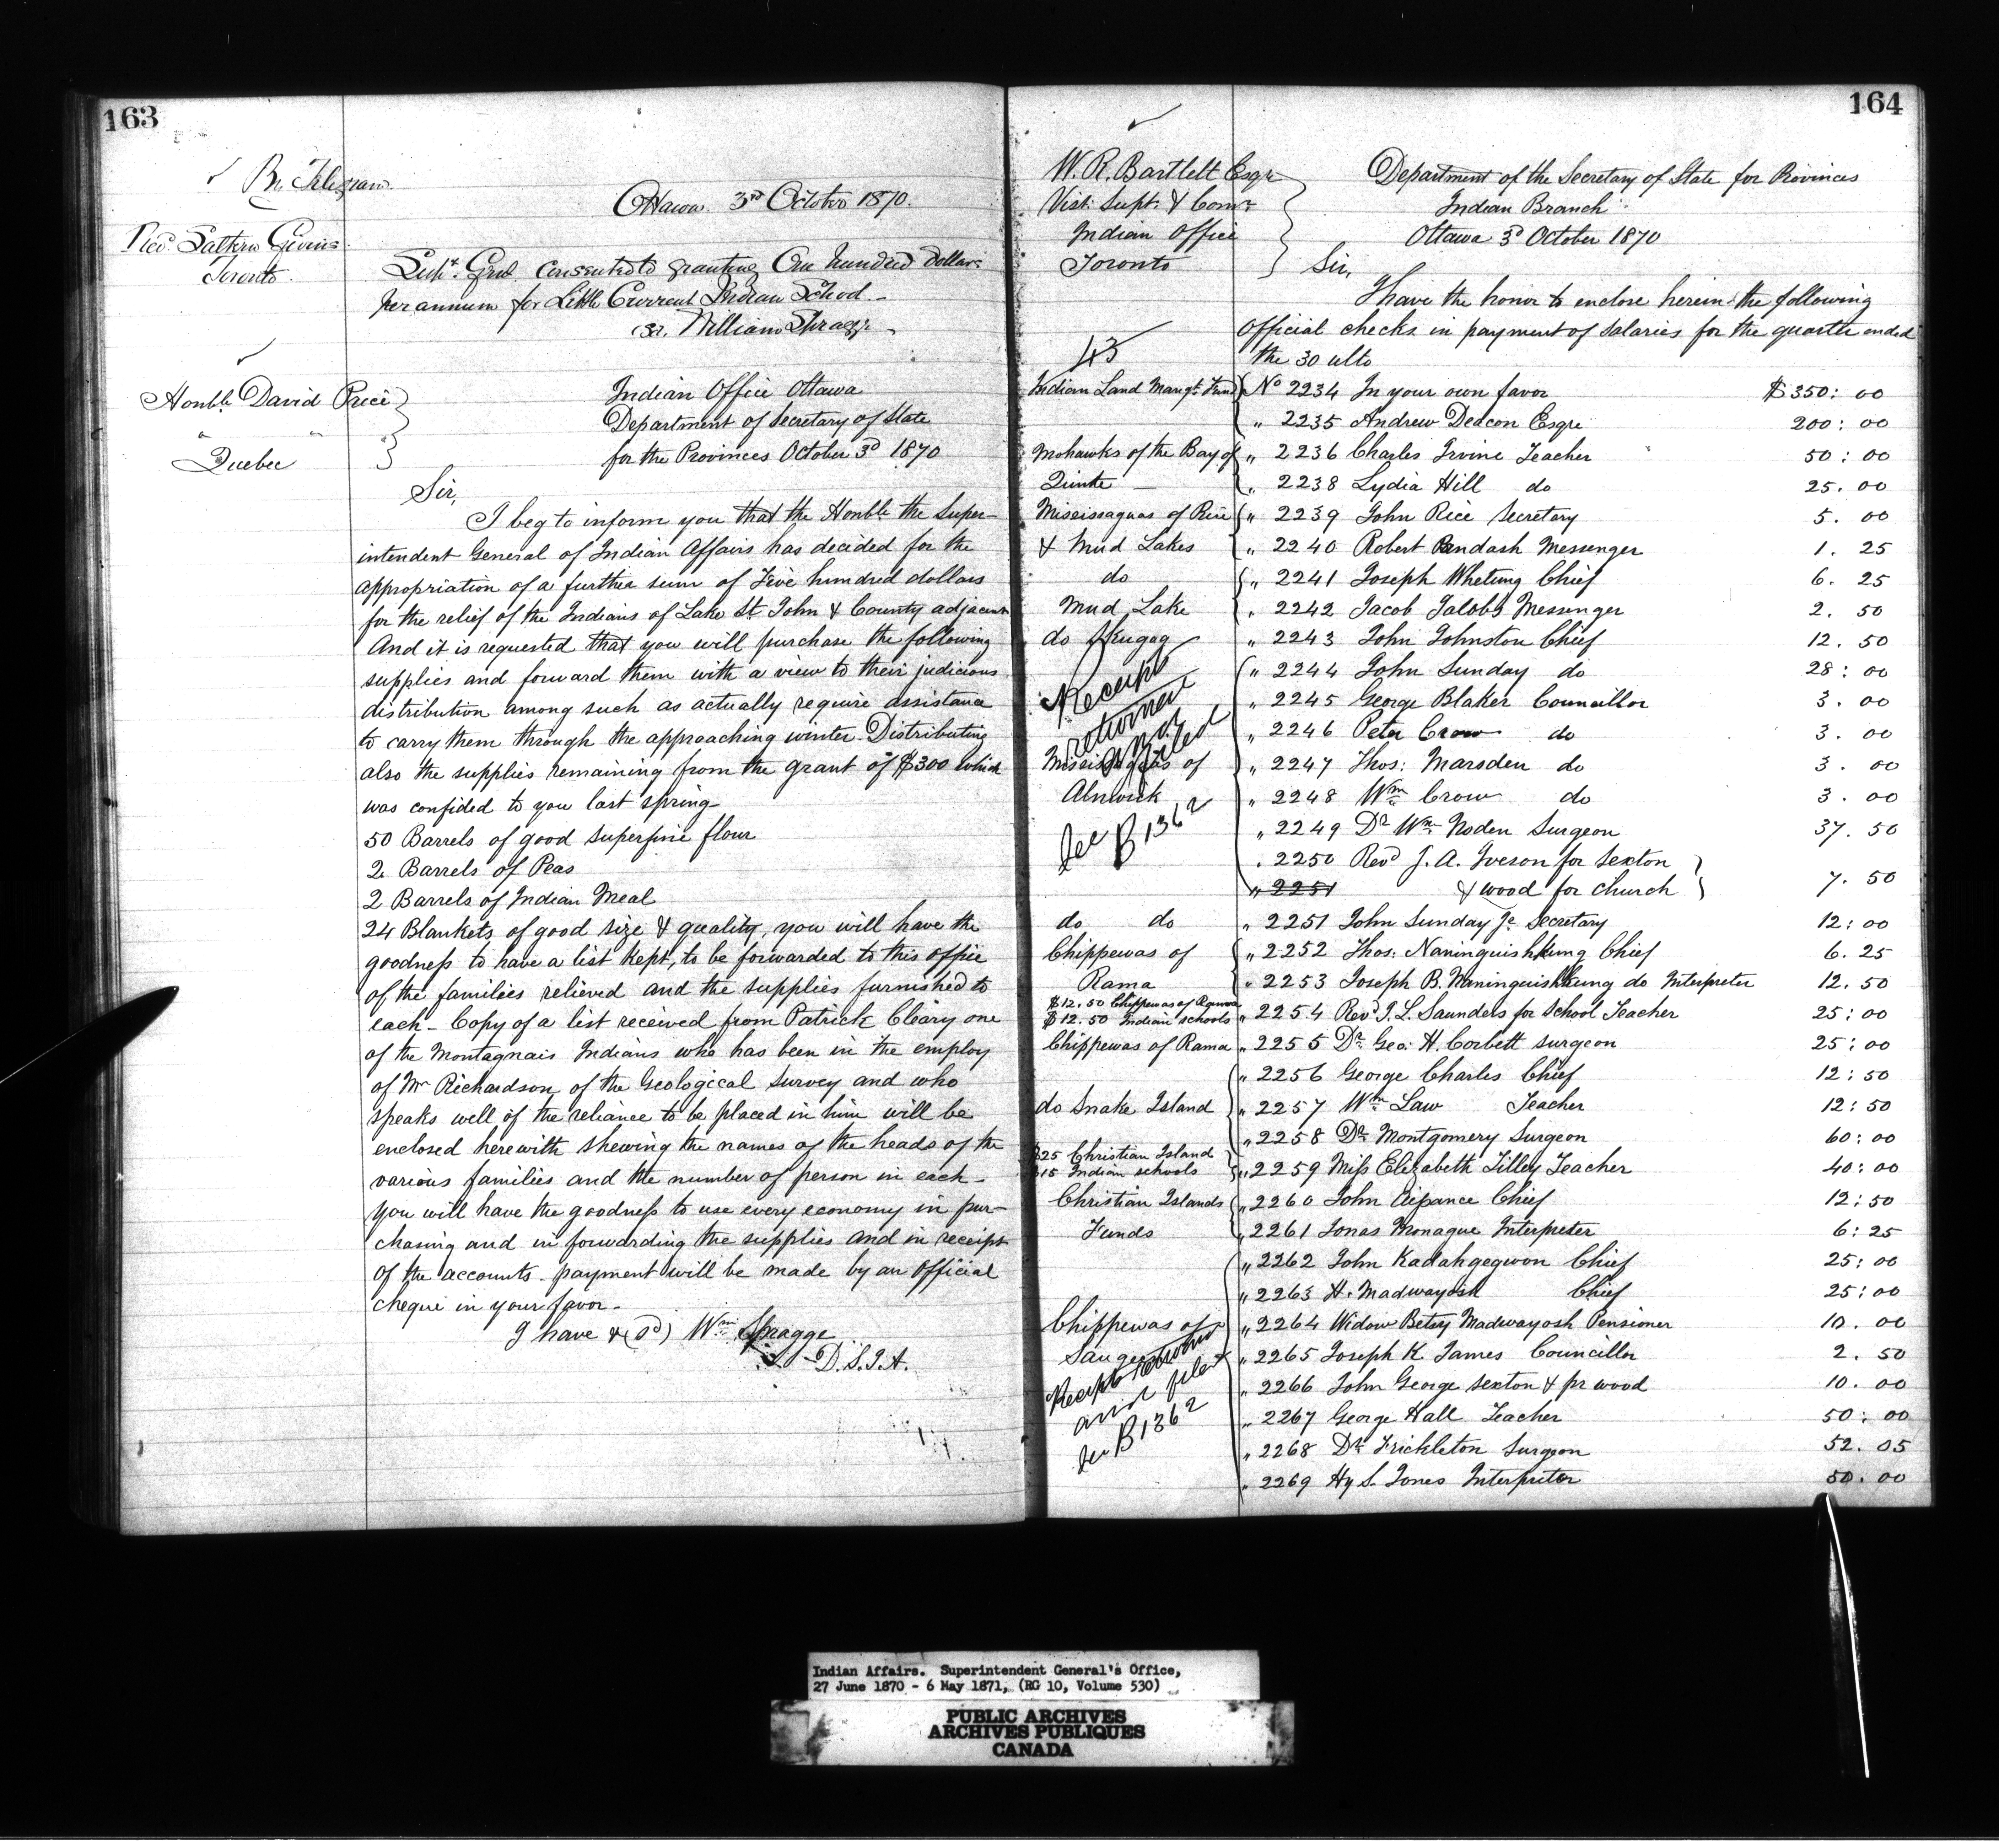 163
By Telegram
Ottawa. 3rd October 1870.
Revd. Saltern Givins
Toronto.
Supt. Genl. consented to granting One hundred dollars
per annum for Little Current Indian School.
William Spragge
Honble. David Price
" "
Quebec
Indian Office Ottawa
Department of Secretary of State
for the Provinces October 3d 1870
Sir,
I beg to inform you that the Honble the Super-
intendent General of Indian Affairs has decided for the
appropriation of a further sum of Five hundred dollars
for the relief of the Indians of Lake St. John & County adjacent
And it is requested that you will purchase the following
supplies and forward them with a view to their judicious
distribution among such as actually require assistance
to carry them through the approaching winter. Distributing
also the supplies remaining from the grant of $300 which
was confided to you last spring
50 Barrels of good superfine flour
2 Barrels of Peas
2 Barrels of Indian Meal
24 Blankets of good size & quality, you will have the
goodness to have a list kept, to be forwarded to this office
of the families relieved and the supplies furnished to
each - Copy of a list received from Patrick Cleary one
of the Montagnais Indians who has been in the employ
of Mr Richardson of the Geological Survey and who
speaks well of the reliance to be placed in him will be
enclosed herewith shewing the names of the heads of the
various families and the number of person in each -
You will have the goodness to use every economy in pur-
chasing and in forwarding the supplies and in receipt
of the accounts payment will be made by an official
cheque in your favor -
I have &c (sd) Wm. Spragge
D.S.I.A.
164
W. R. Bartlett Esqr
Visit. Supt. & Comr.
Indian Office
Toronto
Department of the Secretary of State for Provinces
Indian Branch
Ottawa 3d October 1870
Sir,
I have the honor to enclose herein the following
official checks in payment of salaries for the quarter ended
the 30 ulto
43
Indian Land Mangt. Fund No 2234 In your own favor $350:00
" 2235 Andrew Deacon Esqre 200:00
Mohawks of the Bay of " 2236 Charles Irvine Teacher 50:00
Quinte " 2238 Lydia Hill do 25.00
Mississaguas of Rice " 2239 John Rice Secretary 5.00
& Mud Lakes " 2240 Robert Pandash Messenger 1.25
do " 2241 Joseph Whetung Chief 6.25
Mud Lake " 2242 Jacob Jacobs Messenger 2.50
do Skugog " 2243 John Johnston Chief 12.50
" 2244 John Sunday do 28:00
Receipts " 2245 George Blaker Councillor 3.00
returned " 2246 Peter Crow do 3.00
and filed
Mississaguas of " 2247 Thos: Marsden do 3.00
Alnwick " 2248 Wm Crow do 3.00
See B1362 " 2249 Dr Wm. Noden Surgeon 37.50
" 2250 Revd J. A. Iveson for Sexton
" 2251 & wood for church 7.50
do do " 2251 John Sunday Jr. Secretary 12:00
Chippewas of " 2252 Thos. Naninguishkung Chief 6.25
Rama " 2253 Joseph B. Naninguishkung do Interpreter 12.50
$12.50 Chippewas of Rama
$12.50 Indian schools " 2254 Revd J. L. Saunders for School Teacher 25:00
Chippewas of Rama " 2255 Dr. Geo: H. Corbett surgeon 25:00
" 2256 George Charles Chief 12:50
do Snake Island " 2257 Wm. Law Teacher 12:50
" 2258 Dr. Montgomery Surgeon 60:00
$25 Christian Island
$15 Indian schools " 2259 Miss Elizabeth Tilley Teacher 40:00
Christian Islands " 2260 John Aipance Chief 12:50
Funds " 2261 Jonas Monague Interpreter 6:25
" 2262 John Kadahgegwon Chief 25:00
" 2263 H. Madwayosh Chief 25:00
Chippewas of " 2264 Widow Betsy Madwayosh Pensioner 10.00
Saugeen " 2265 Joseph K. James Councillor 2.50
Receipts returned " 2266 John George Sexton & pr wood 10.00
and filed " 2267 George Hall Teacher 50:00
See B1362 " 2268 Dr. Frickleton Surgeon 52.05
" 2269 Hy S. Jones Interpreter 50.00
Indian Affairs. Superintendent General's Office,
27 June 1870 - 6 May 1871, (RG 10, Volume 530)
PUBLIC ARCHIVES
ARCHIVES PUBLIQUES
CANADA